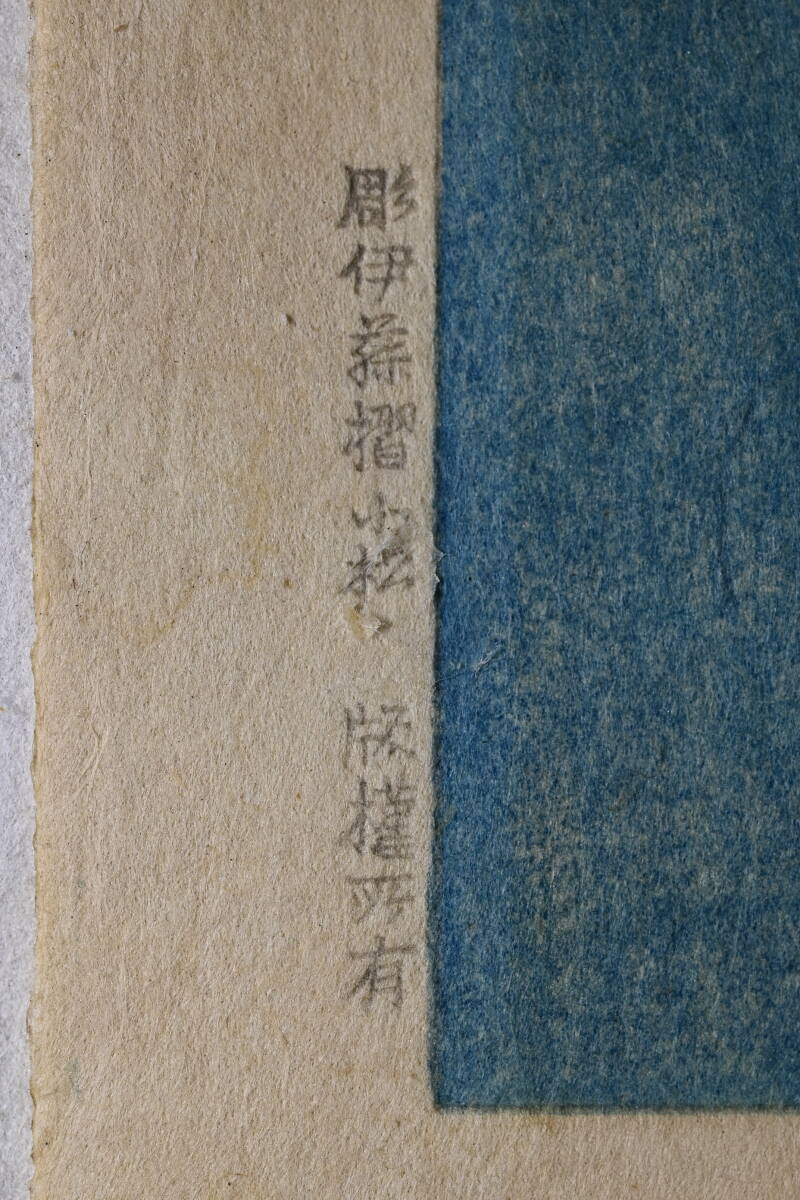 彫伊藤摺小松 版權所有